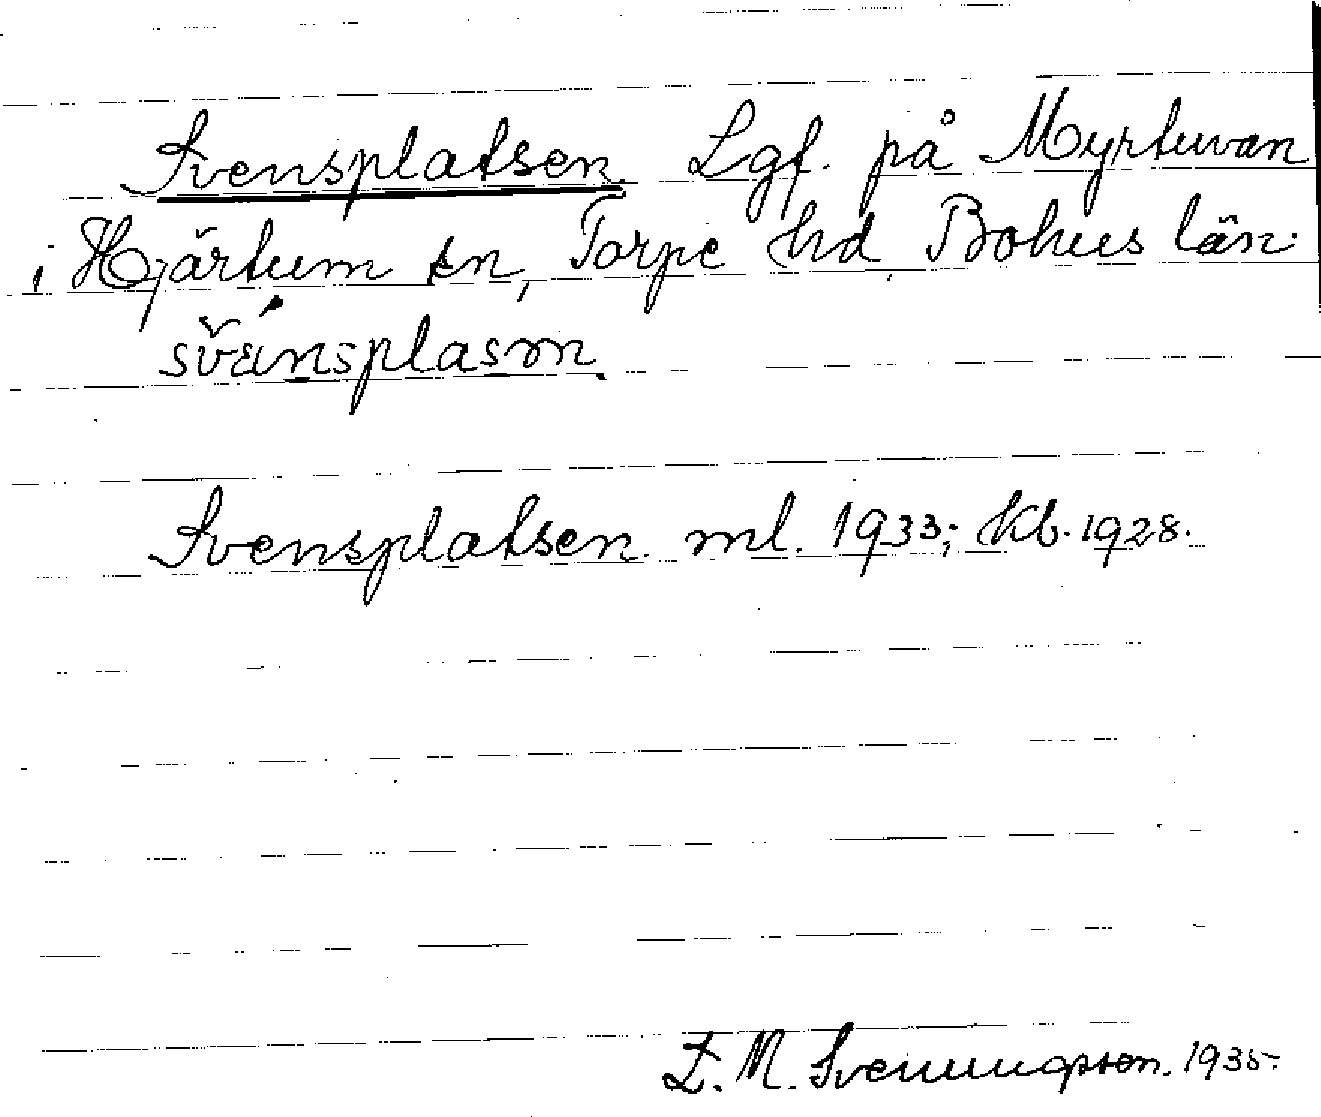 Svensplatsen Lgf. på Myrtuvan
i Hjärtum sn, Torpe hd Bohus län.
svänsplasm.
Svensplatsen ml. 1933; kb. 1928.
E. M. Svenungsson. 1935.